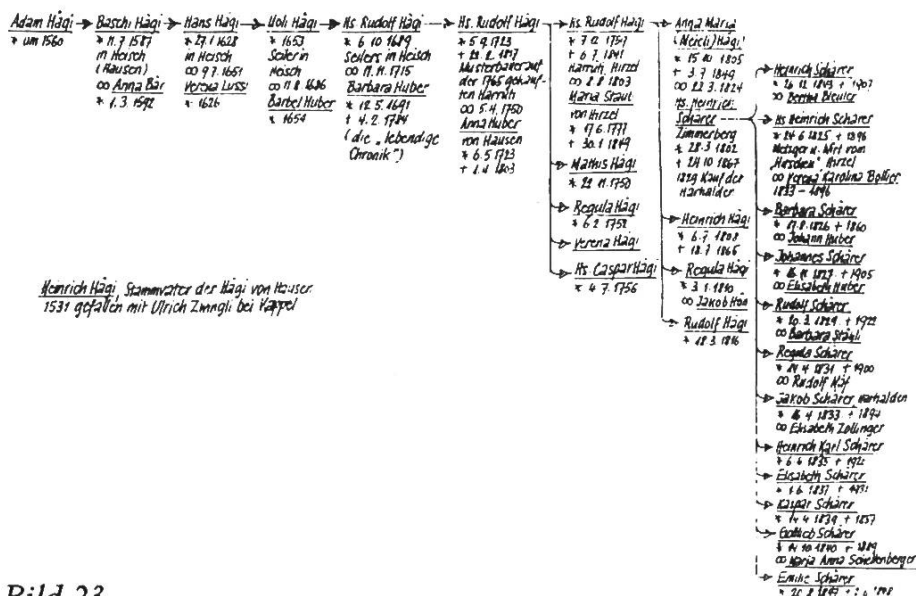 Adam Hägi
* um 1560
Baschi Hägi
* 11.7 1587
in Heisch
(Hausen)
∞ Anna Bär
* 1.3.1592
Hans Hägi
* 27.1 1628
in Heisch
∞ 9.7.1651
Verena Lussi
* 1626
Uoli Hägi
* 1653
Seiler in
Heisch
∞ 11.8 1686
Barbel Huber
* 1654
Hs Rudolf Hägi
* 6 10 1689
Seilers in Heisch
∞ 17.11.1715
Barbara Huber
* 12.5.1691
+ 4.2.1784
(die „lebendige
Chronik")
Hs. Rudolf Hägi
* 5 9 1723
Musterbauer auf
der 1765 gekauf-
ten Harrüti
∞ 5.4.1750
Anna Huber
von Hausen
* 6.5 1723
+ 1.4 1803
Hs. Rudolf Hägi
* 7 12 1757
+ 6.7.1841
Harrüti, Hirzel
∞ 8.8 1803
Maria Staub
von Hirzel
* 17 6.1777
+ 30.1 1849
Mathis Hägi
* 22 11.1750
Regula Hägi
* 6 2 1752
Verena Hägi
Hs. Caspar Hägi
* 4 7.1756
Anna Maria
Hägi
* 15 10 1805
+ 3.7 1849
∞ 22 3.1824
Hs. Heinrich
Schärer
Zimmerberg
* 28.3 1802
+ 24 10 1867
1829 Kauf der
Harhalden
Heinrich Hägi
* 6.7 1808
+ 18.7 1865
Regula Hägi
* 3.1.1810
∞ Jakob
Rudolf Hägi
* 18 3.1816
Heinrich Schärer
+ 1907
∞ Bertha Bleuler
Hs Heinrich Schärer
* 24 6 1825 + 1896
Metzger u. Wirt vom
„Hirschen" Hirzel
∞ Verena Karolina Bollier
1833 – 1896
Barbara Schärer
* 17.8.1826 + 1860
∞ Johann Huber
Johannes Schärer
+ 1905
∞ Elisabeth Huber
Rudolf Schärer
* 20.3.1829 + 1922
∞ Barbara Stäubli
Regula Schärer
* 24 4 1831 + 1900
∞ Rudolf Näf
Jakob Schärer, Harhalden
* 16 4 1833 + 1894
∞ Elisabeth Zollinger
Heinrich Karl Schärer
* 6 6 1835 + 1921
Elisabeth Schärer
* 1.6 1837 + 1931
Kaspar Schärer
* 14 4 1839 + 1857
Gottlieb Schärer
* 14 10 1840 + 1889
∞ Maria Anna Schellenberger
Emilie Schärer
Heinrich Hägi, Stammvater der Hägi von Hausen
1531 gefallen mit Ulrich Zwingli bei Kappel
Bild 23